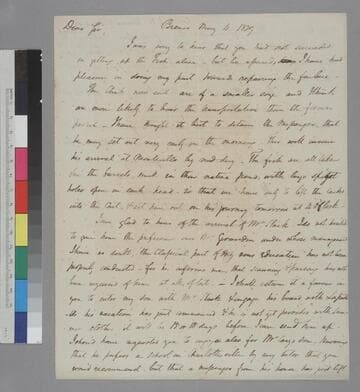 Dear Sir, Bremo May 4 1819
I was sorry to hear that you had not succeeded
in getting up the Fish alive - but be assured, I have had
pleasure in doing my part towards repairing the failure.
The Chub now sent are of a smaller size and I think
are more likely to bear the transportation than the former
parcel. I have thought it best to detain the Messenger that
he may set out very early in the morning. This will insure
his arrival at Monticello by mid-day. The fish are all taken
in the barrels sunk in their native pond, with
holes open in each head. so that we have only to lift the casks
into the Cart, & set him out on his journey tomorrow at 2 O'Clock.
I am glad to hear of the arrival of Mr Stack. I do not hesitate
to give him the preference over Mr Geronardin under whose management
I have no doubt, the Classical part of my sons education has not been
properly conducted - for he informs me that scanning & parsing have not
been required of him at all, of late. I shall esteem it a favour in
you to enter my son with Mr Stack & engage his board with Laporte.
As his vacation has just commenced & he is not yet provided with
clothes it will be 8 or 10 days before I can send him up
John's home requests you to engage also for Mr son. knowing
that he prefers a school in Charlottesville by any tutor that you
would recommend but that a messenger from his house has just left